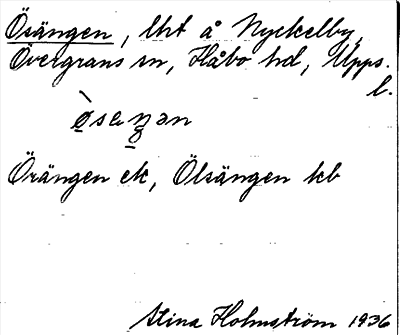 Ösängen, lht å Nyckelby,
Övergrans sn, Håbo hd, Upps.
l.
ø̀seŋən
Örängen ek, Ölsängen kb
Stina Holmström 1936